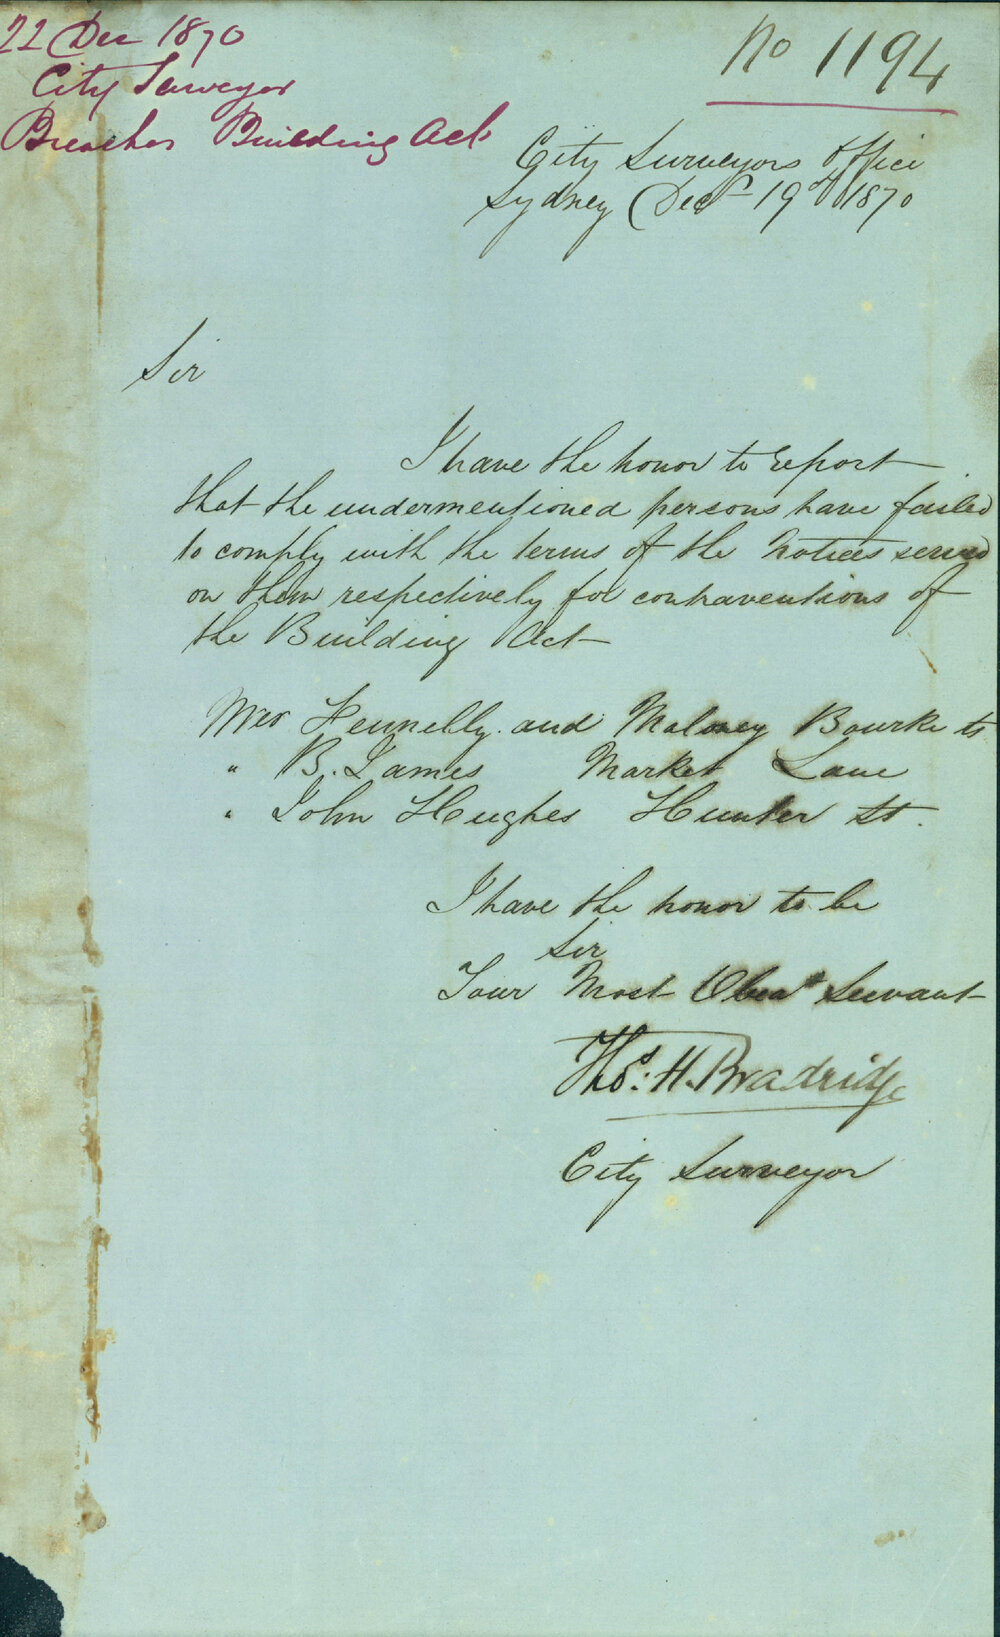 22 Dec 1870
City Surveyor
Breaches Building Act
No 1194
City Surveyors Office
Sydney Decr 19th 1870
Sir
I have the honor to report
that the undermentioned persons have failed
to comply with the terms of the Notices served
on them respectively for contraventions of
the Building Act
Messrs Fennelly and Maloney Bourke St
" B. James Market Lane
" John Hughes Hunter St.
I have the honor to be
Sir
Your Most Obedt Servant
Thos. H. Bradridge
City Surveyor